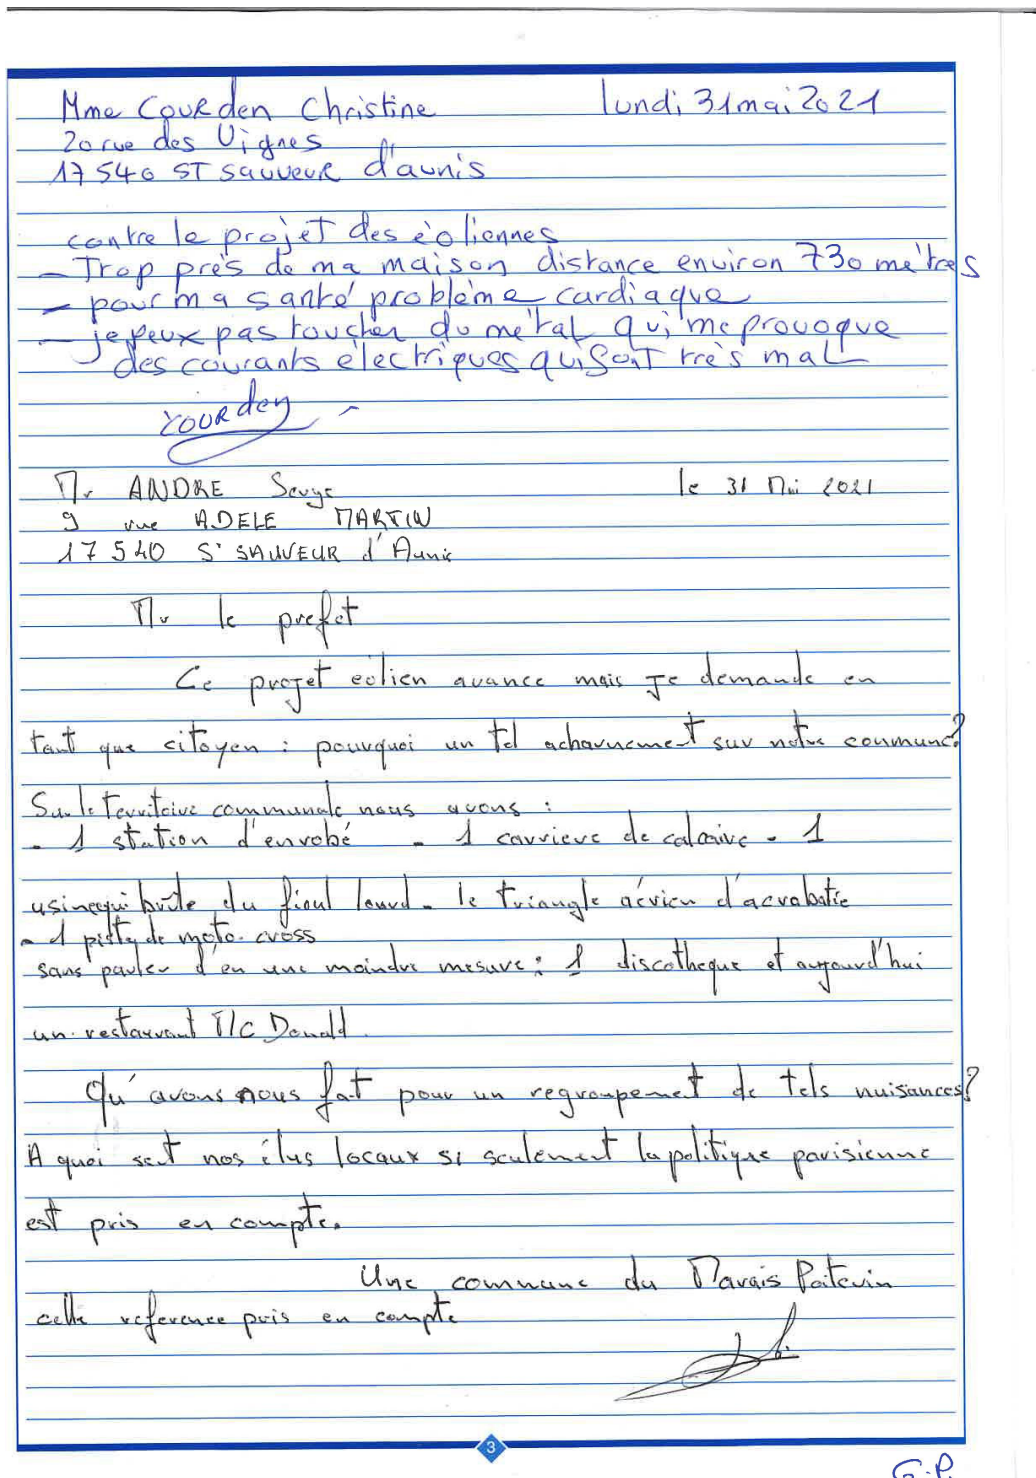 Mme Courden Christine lundi 31 mai 2021
20 rue des Vignes
17540 ST sauveur d'aunis
contre le projet des éoliennes
- Trop près de ma maison distance environ 730 mètres
- pour ma santé problème cardiaque
- je peux pas toucher du métal qui me provoque
des courants électriques qui font très mal
Courden
Mr ANDRE Serge le 31 Mai 2021
9 rue ADELE MARTIN
17540 St SAUVEUR d'Aunis
Mr le prefet
Ce projet eolien avance mais je demande en
tant que citoyen : pourquoi un tel acharnement sur notre commune?
Sur le territoire communale nous avons :
- 1 station d'enrobé - 1 carriere de calcaire - 1
usine qui brûle du fioul lourd - le triangle aérien d'acrobatie
- 1 piste de moto-cross
sans parler d'en une moindre mesure : 1 discotheque et aujourd'hui
un restaurant Mc Donald.
Qu'avons nous fat pour un regroupement de tels nuisances?
A quoi sert nos élus locaux si seulement la politique parisienne
est pris en compte.
Une commune du Marais Poitevin
cette reference pris en compte
3
G.P.